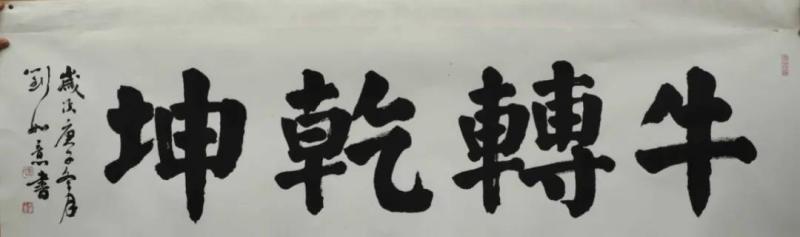 牛轉乾坤
歲次庚子冬月
劉如意書